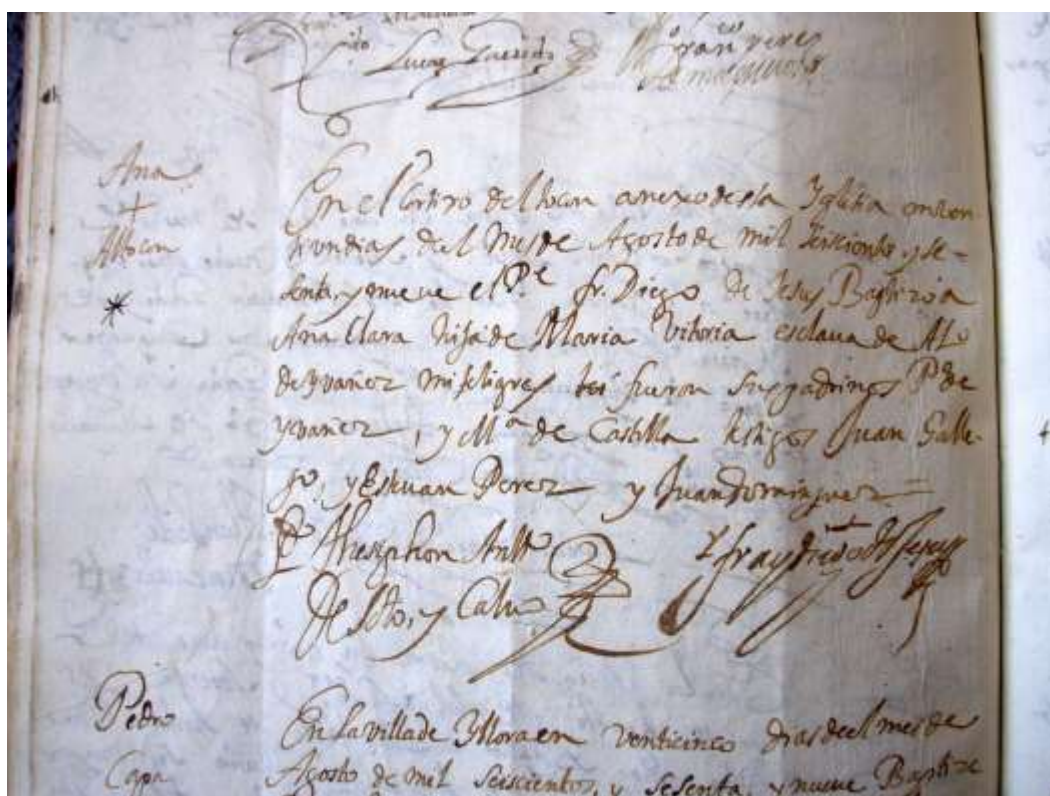 Lucas Quesado
Ana
+
Alocon
En el Cortixo del tocon anexo desta Yglesia en
dias del Mes de Agosto de mil seiscientos y se=
senta, y nueve el Pe. fr. Diego de Jesus Baptizo a
Ana Clara hija de Maria Vitoria esclava de Alo
de yvañez mi feligres fueron sus padrinos Po de
yvañez, y Ma de Castilla testigos Juan Galle-
go, y Estevan Perez y Juan Dominguez =
Thesiphon Anto
fray Diego de Jesus
de Soto, y Calvo
Pedro
Capa
En la villa de Yllora en venticinco dias del mes de
Agosto de mil seiscientos, y sesenta, y nueve Baptize